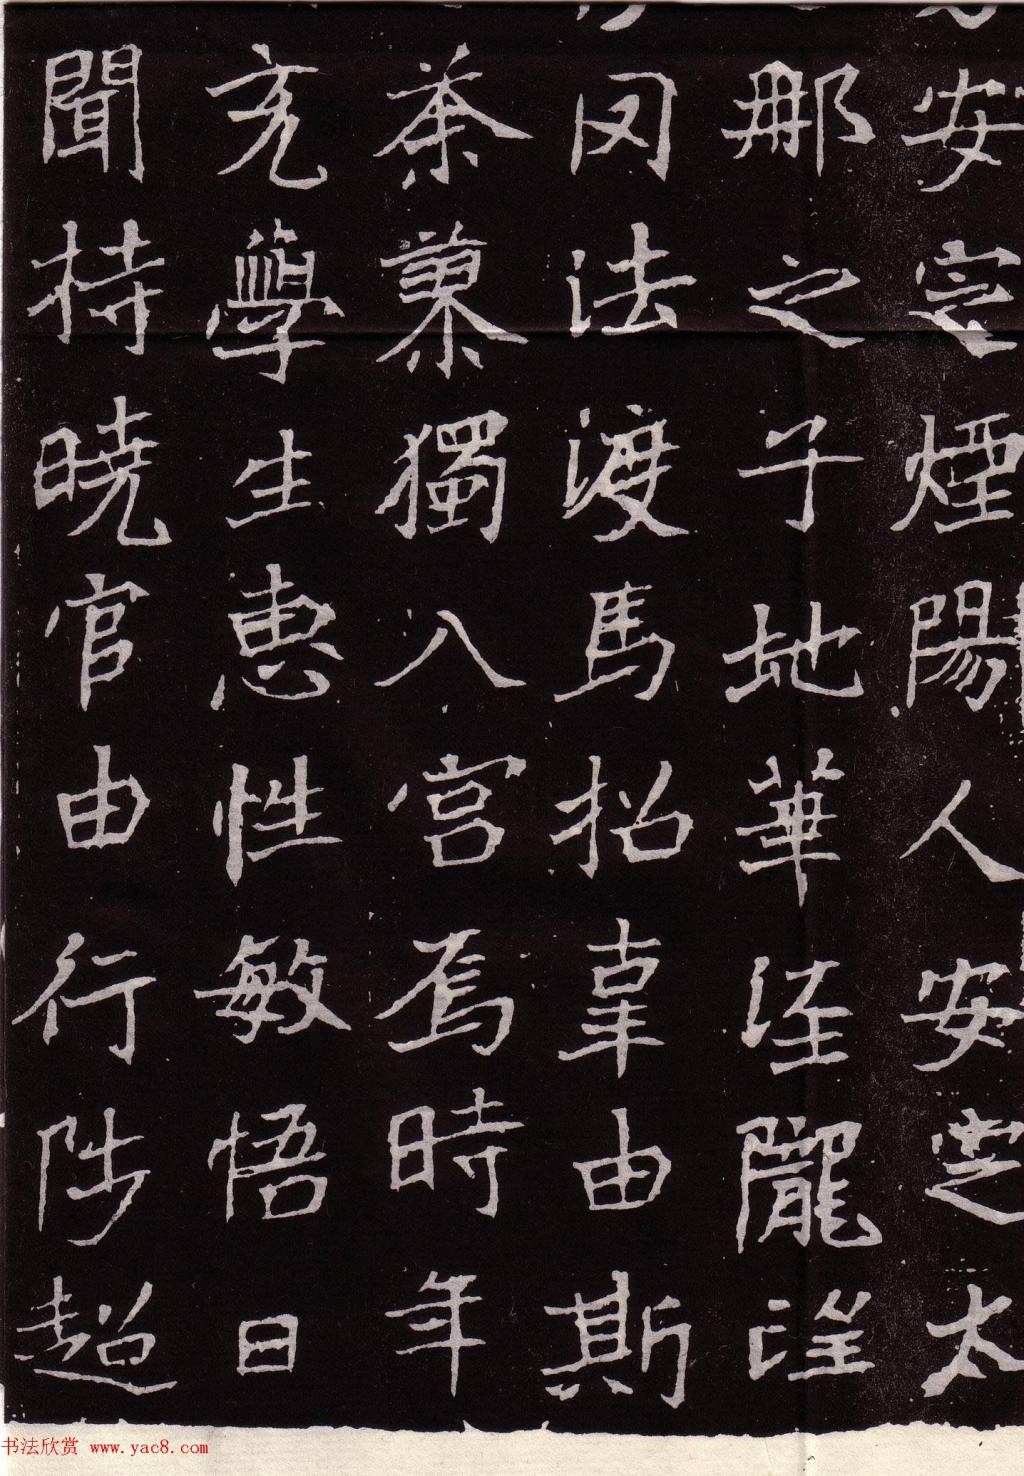 安定煙陽人安定太
那之子地華涇隴望
罔法渡馬招辜由斯
荼獨入宮焉時年
充學生惠性敏悟日
聞持曉官由行陟超
书法欣赏 www.yac8.com